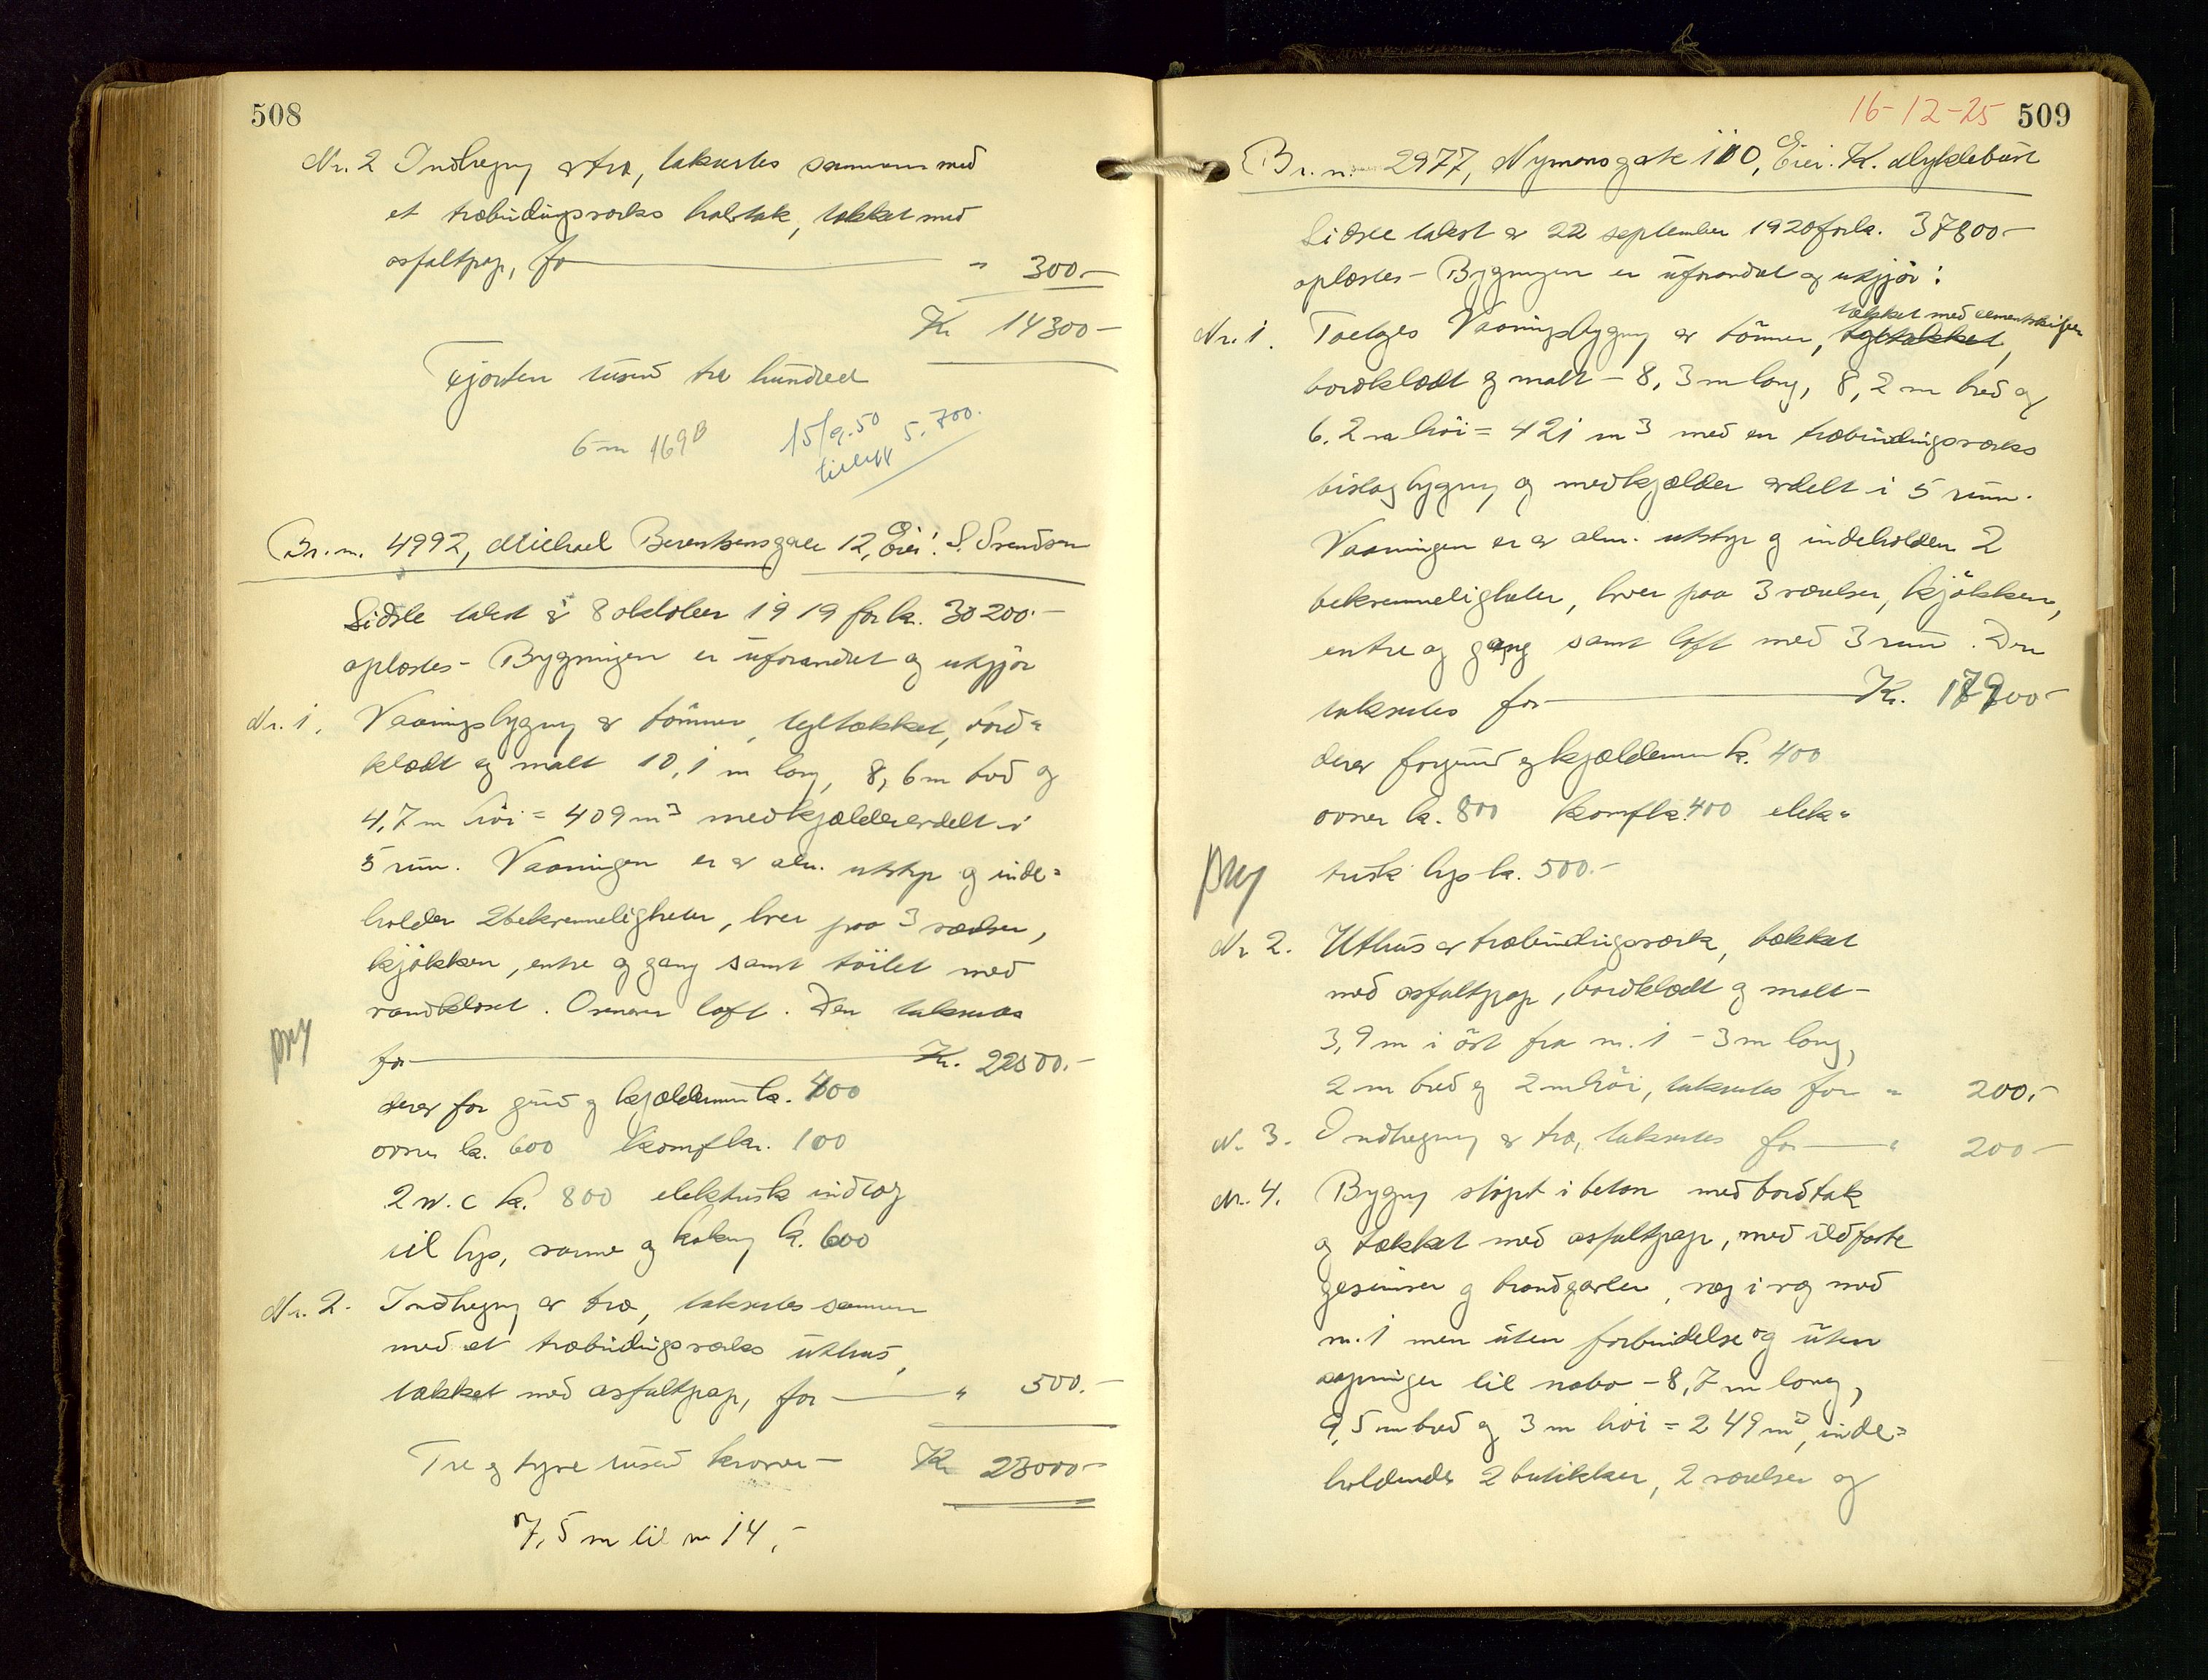 508
Nr. 2 Indhegning av træ, takseres sammen med
et træbindingsverks halvtak, tækket med
asfaltpap, for " 300.-
Kr 14300-
Fjorten tusend tre hundred
6 m 169B
15/9-50
tillegg 5.700.
Br. nr. 4992, Michael Berentsensgate 12, Eier: S. Svendsen
Sidste takst av 8 oktober 1919 for kr. 30200.-
oplæstes - Bygningen er uforandret og utgjör
Nr. 1. Vaaningsbygning av tömmer, tegltækket, bord=
klædt og malt 10,1 m lang, 8,6 m bred og
4,7 m höi = 409 m³ med kjælder avdelt i
5 rum. Vaaningen er av alm. utstyr og inde=
holder 2 bekvemmeligheter, hver paa 3 værelser,
kjökken, entre og gang samt toilet med
vandklosset. Ovenover loft. Den takseres
for Kr. 22500.-
derav for grund og kjældermur kr. 400
ovner kr. 600 komf kr. 100
2 w.c kr. 800 elektrisk indlæg
til lys, varme og kokning kr. 600
Nr. 2. Indhegning av træ, takseres sammen
med et træbindingsverks uthus,
tækket med asfaltpap, for " 500.-
Tre og tyve tusend kroner - Kr 23000-
7,5 m til nr 14,-
16-12-25 509
Br. nr. 2977, Nymansgate 110, Eier. K. Myklebust
Sidste takst av 22 september 1920 for kr. 37800-
oplæstes - Bygningen er uforandret og utgjör:
tækket med cementskifer
Nr. 1. Toetages Vaaningsbygning av tömmer, tegltækket,
bordklædt og malt - 8,3 m lang, 8,2 m bred og
6,2 m höi = 421 m³ med en træbindingsverks
bislagbygning og med kjælder avdelt i 5 rum.
Vaaningen er av alm. utstyr og indeholder 2
bekvemmeligheter, hver paa 3 værelser, kjökken,
entre og gang samt loft med 3 rum. Den
takseres for Kr. 17900-
derav for grund og kjældermur kr. 400
ovner kr. 800 komf kr. 400 elek=
trisk lys kr. 500.-
Nr 2. Uthus av træbindingsverk, tækket
med asfaltpap, bordklædt og malt -
3,9 m i öst fra nr. 1 - 3 m lang,
2 m bred og 2 m höi, takseres for " 200.-
Nr. 3. Indhegning av træ, takseres for " 200-
Nr. 4. Bygning stöpt i beton med bordtak
og tækket med asfaltpap, med ildfaste
gesimser og brandgavler, væg i væg med
nr. 1 men uten forbindelse og uten
aapninger til nabo - 8,7 m lang,
9,5 m bred og 3 m höi = 249 m³, inde=
holdende 2 butikker, 2 værelser og